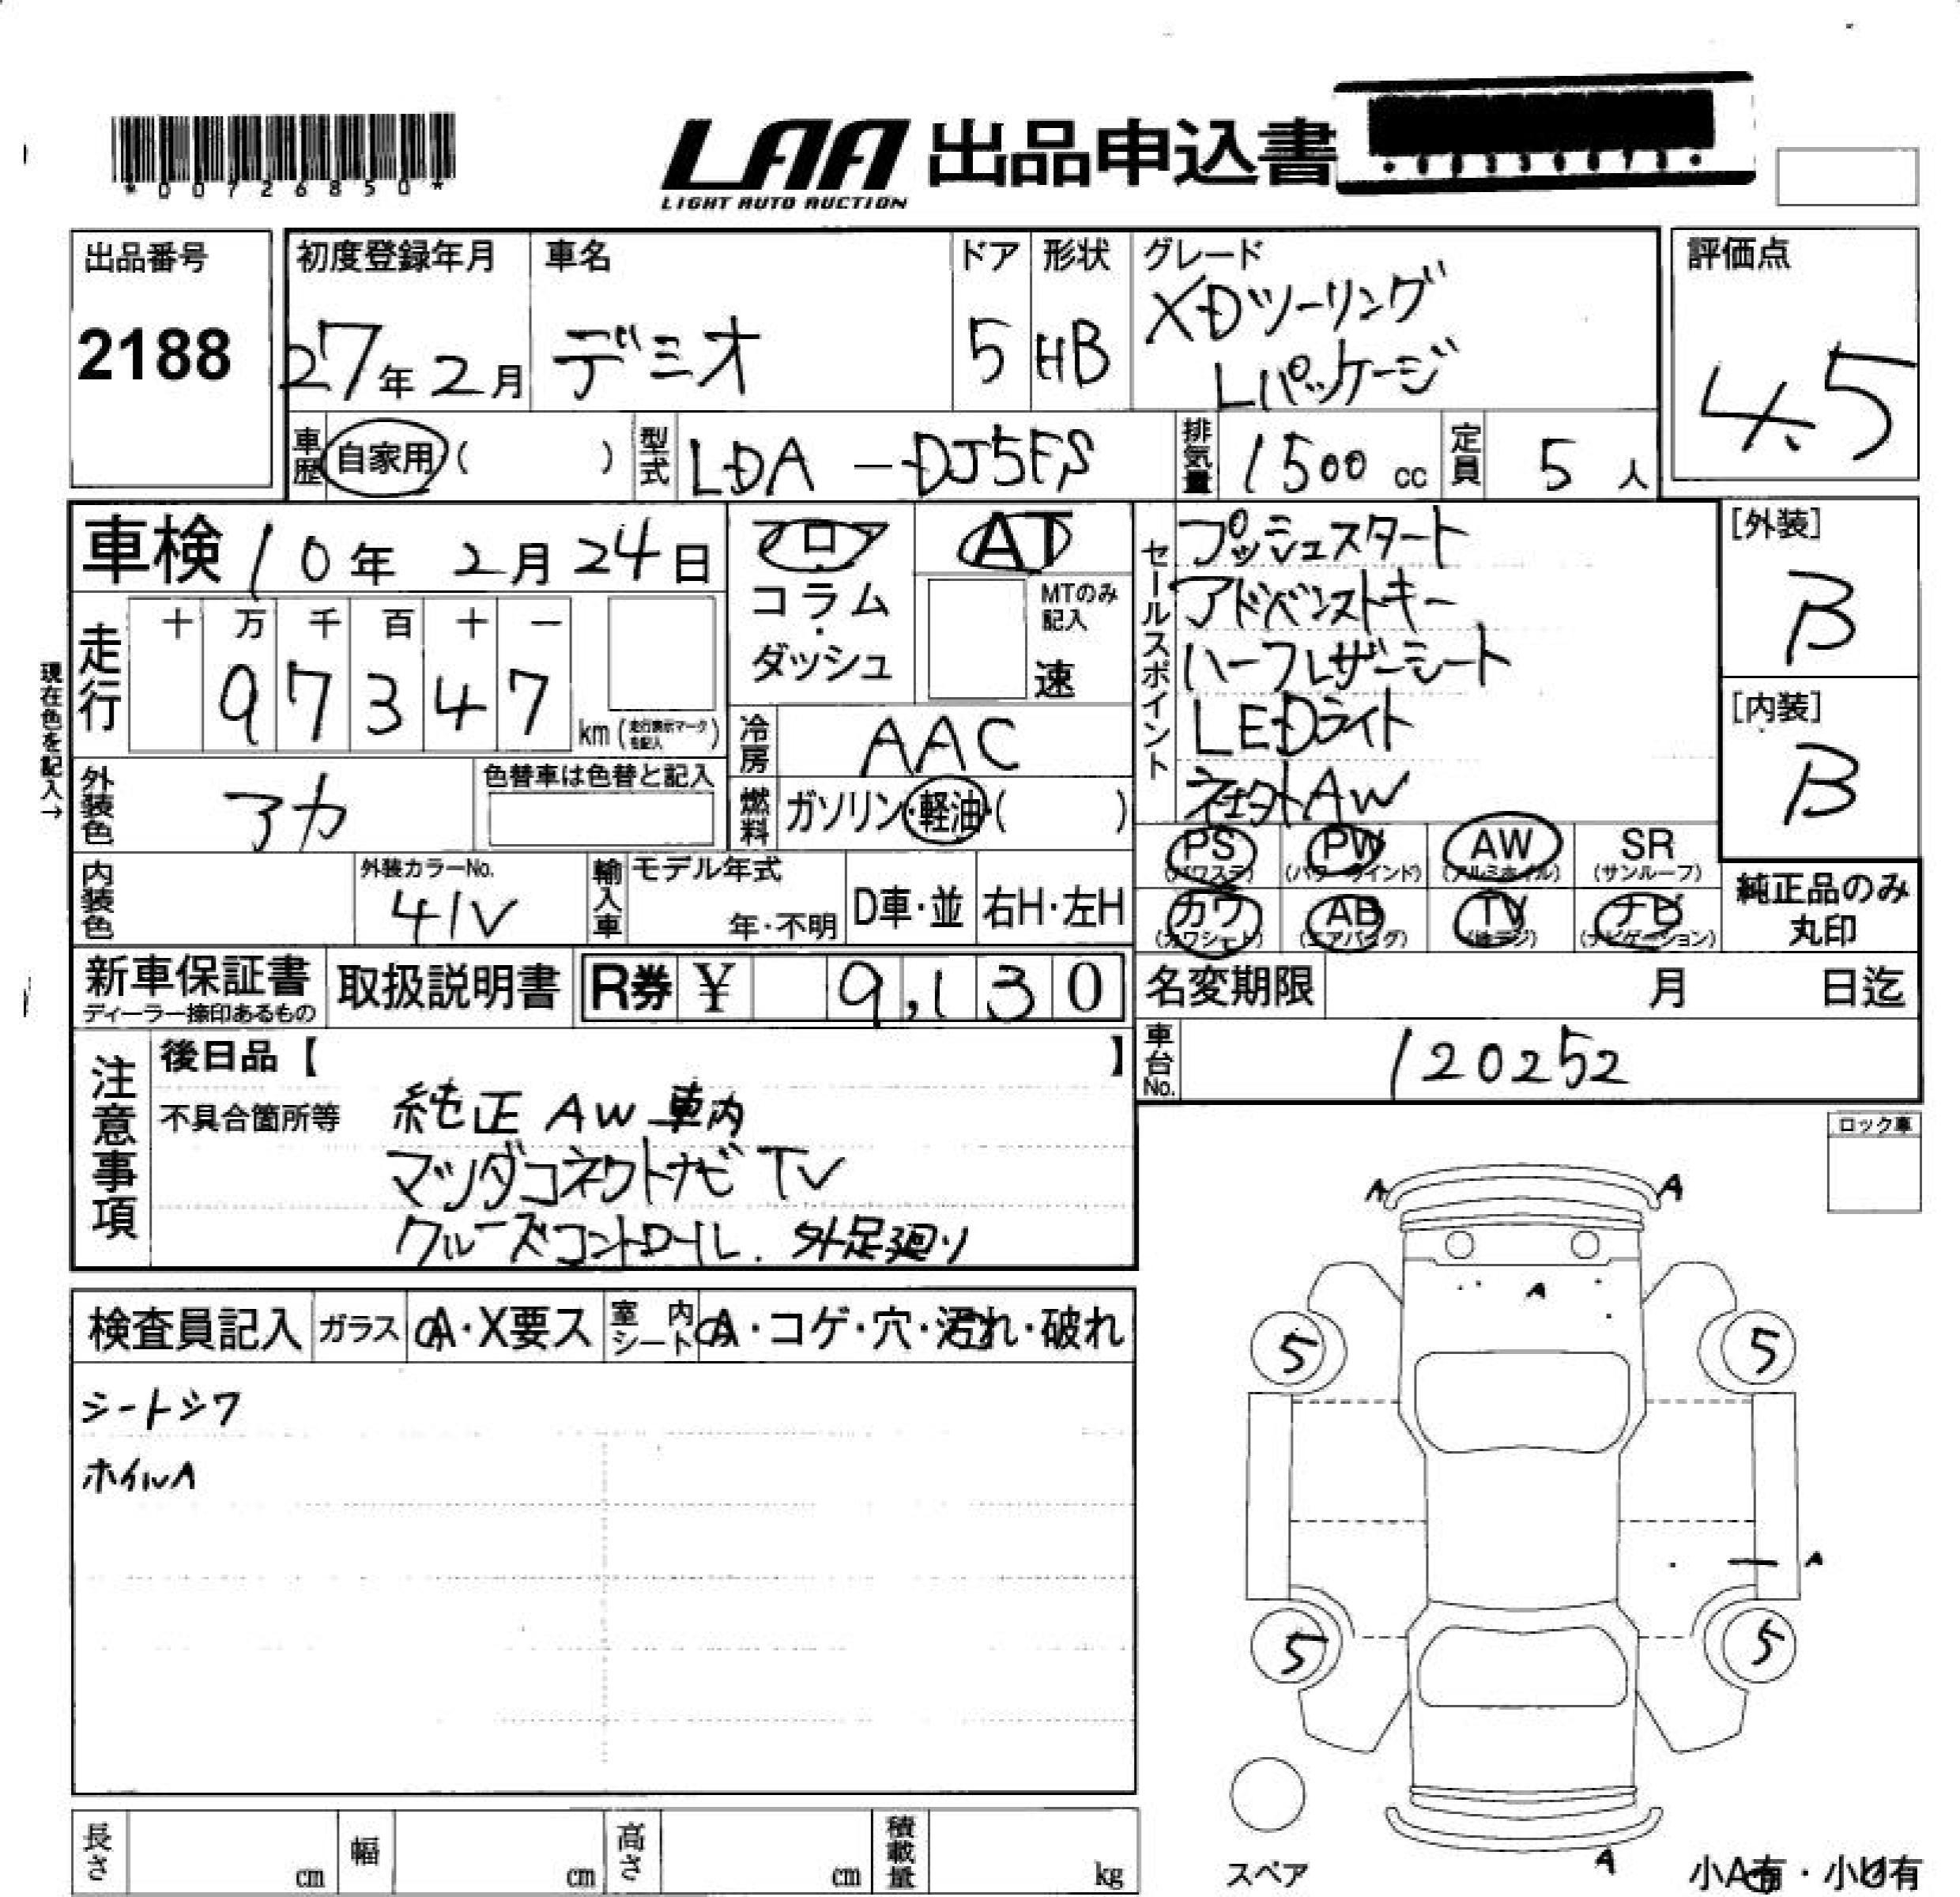 *00726850*
LAA 出品申込書
LIGHT AUTO AUCTION
出品番号
2188
初度登録年月
27年2月
車名
デミオ
ドア
5
形状
HB
グレード
XDツーリング
Lパッケージ
評価点
4.5
車歴 自家用( )
型式 LDA-DJ5FS
排気量 1500cc
定員 5人
車検 10年2月24日
フロア
コラム・
ダッシュ
AT
MTのみ記入
速
セールスポイント
プッシュスタート
アドバンストキー
ハーフレザーシート
LEDライト
社外AW
[外装]
B
[内装]
B
現在色を記入→
走行
十 万 千 百 十 一
9 7 3 4 7
km(走行表示マークを記入)
冷房 AAC
燃料 ガソリン・軽油・( )
外装色 アカ
色替車は色替と記入
内装色
外装カラーNo.
41V
輸入車
モデル年式
年・不明
D車・並
右H・左H
PS(パワステ)
PW(パワーウインド)
AW(アルミホイル)
SR(サンルーフ)
カワ(カワシート)
AB(エアバッグ)
TV(地デジ)
ナビ(ナビゲーション)
純正品のみ
丸印
新車保証書
ディーラー捺印あるもの
取扱説明書
R券 ¥ 9,130
名変期限 月 日迄
車台No. 120252
注意事項
後日品【 】
不具合箇所等 純正AW車内
マツダコネクトナビTV
クルーズコントロール. 外足廻り
ロック車
検査員記入
ガラス A・X要ス
室内シート A・コゲ・穴・汚れ・破れ
シートシワ
ホイルA
A A
A
5 5
A
5 5
A
スペア
小A有・小U有
長さ cm
幅 cm
高さ cm
積載量 kg